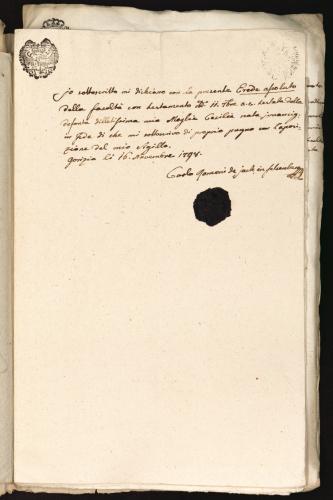 Io sottoscritto mi dichiaro con la presente Erede assoluto
della facoltà con testamento
defunta dilettissima mia Moglie Cecilia nata
in fede di che mi sottoscrivo di proprio pugno con l'apposi-
zione del mio Sigillo.
Gorizia li 16. Novembre 1794.
Carlo de